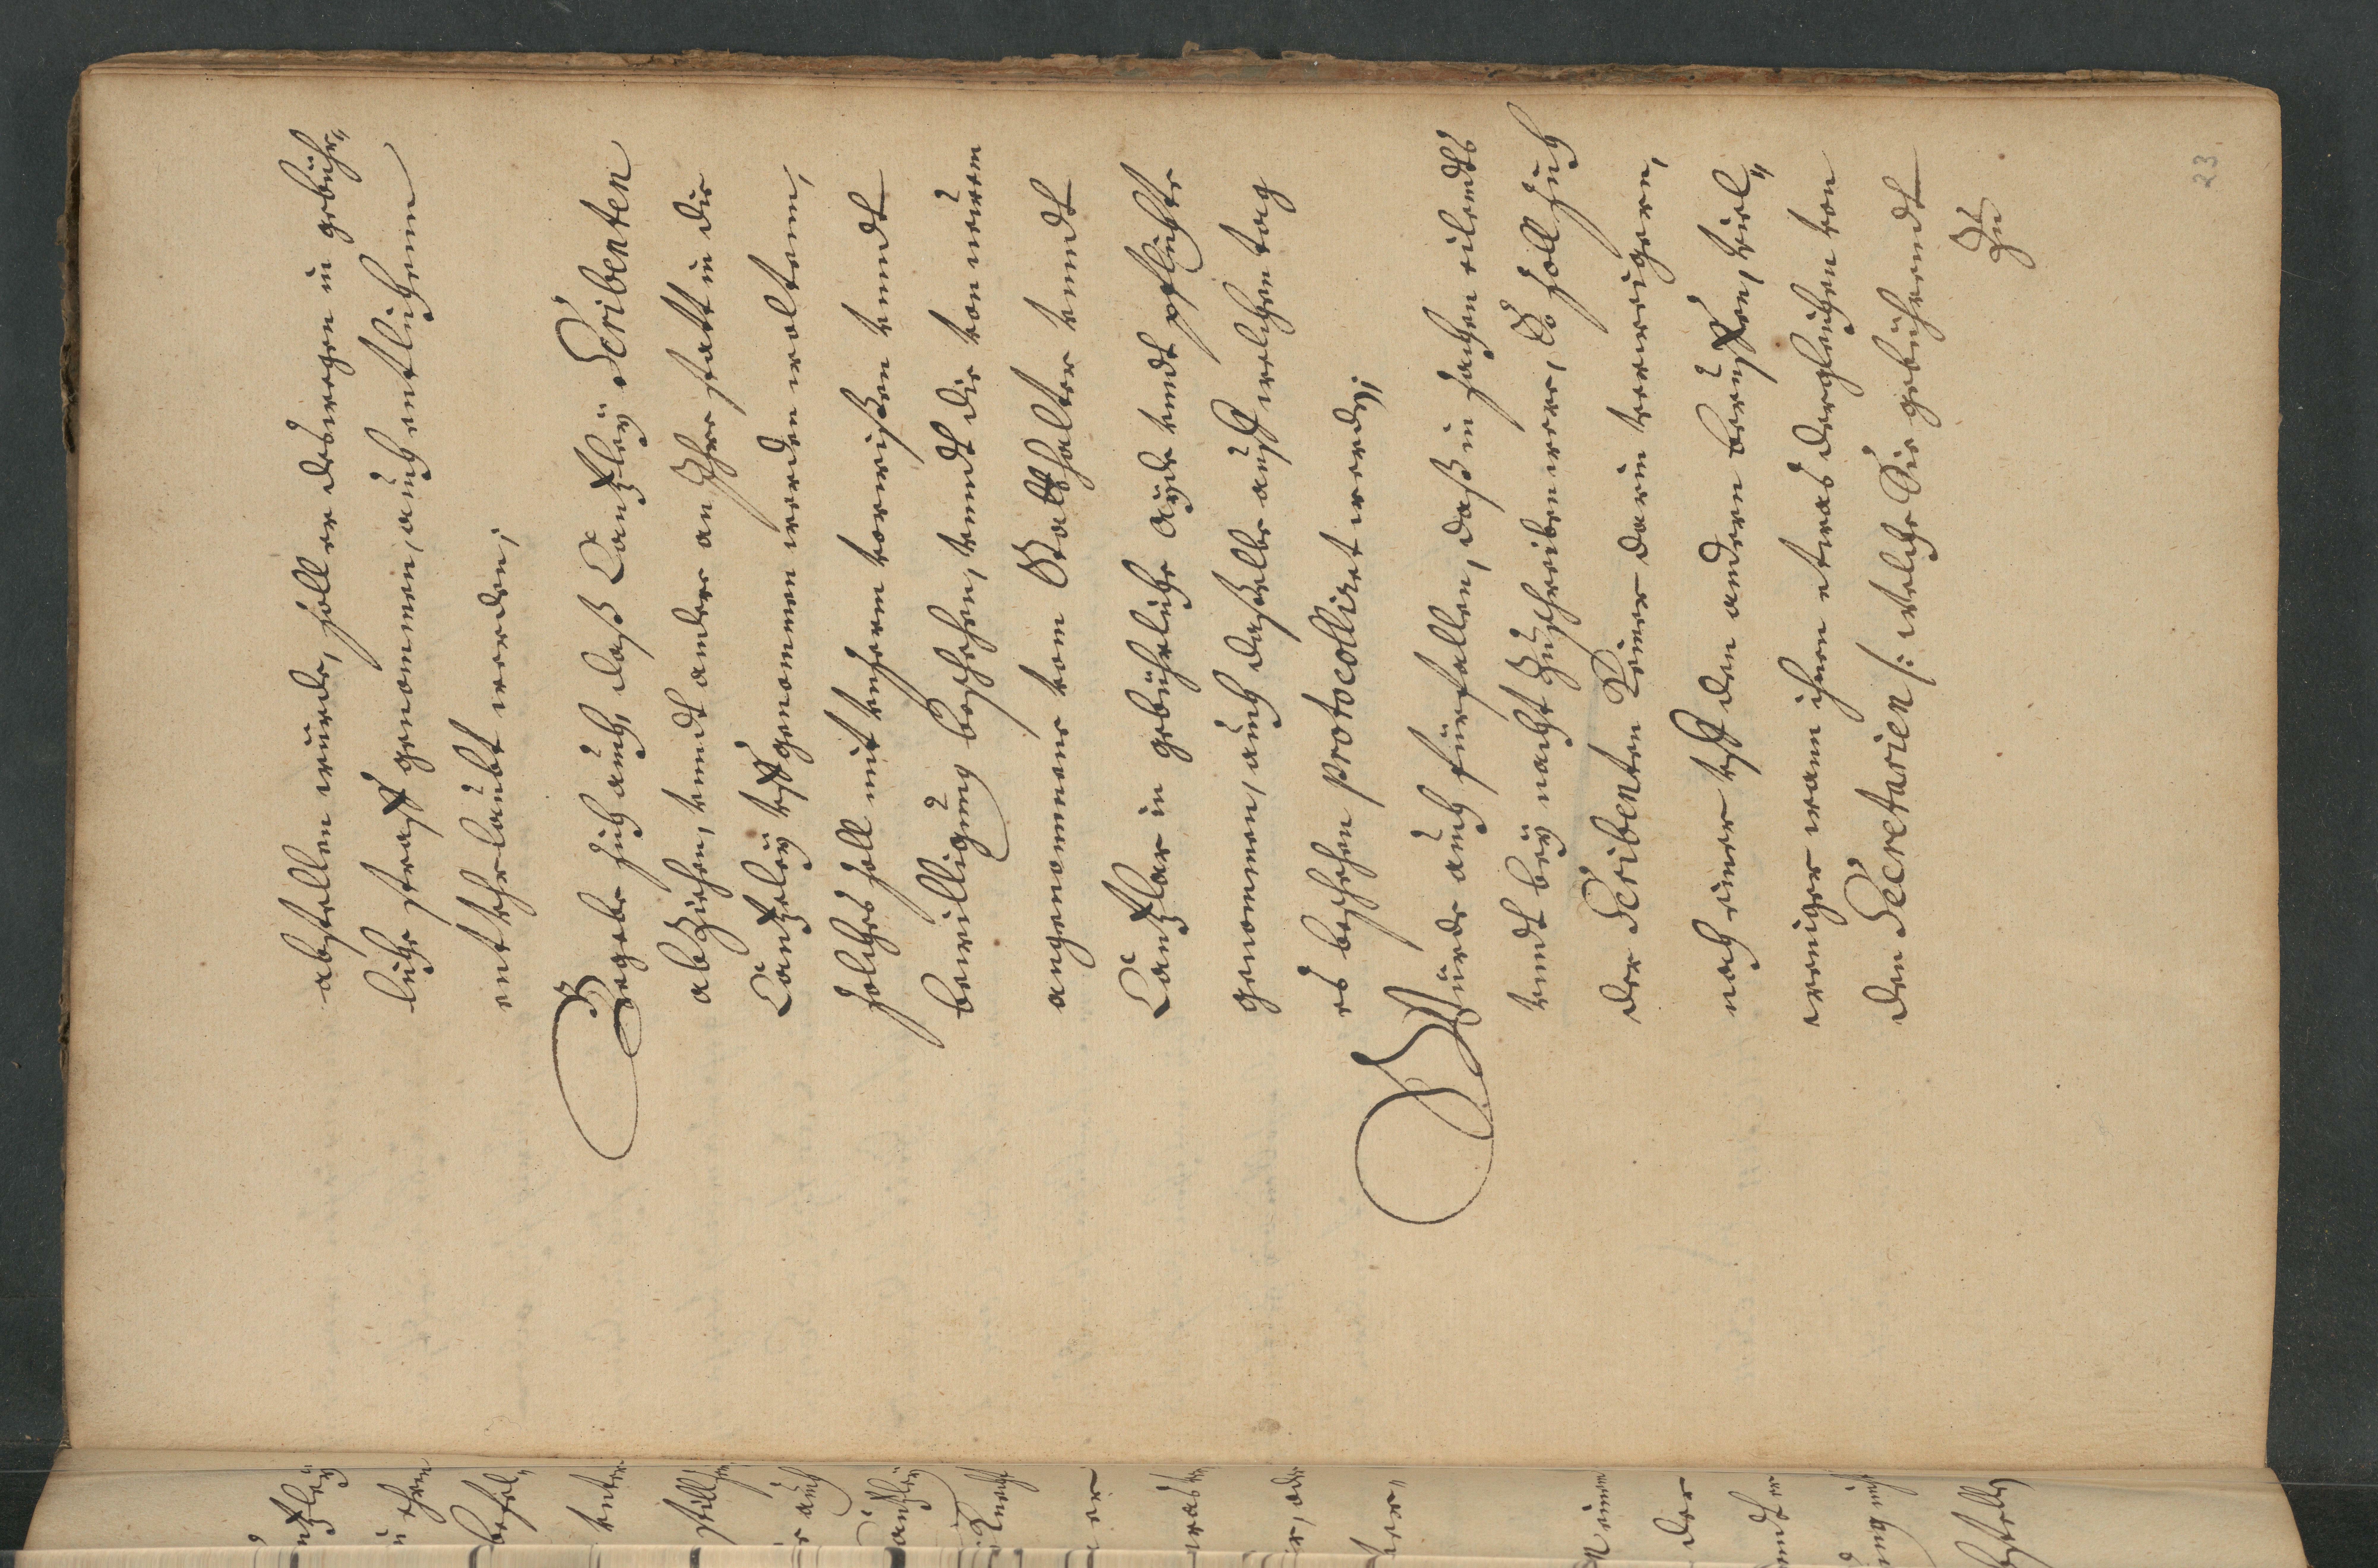 abstellen würde, soll er deswegen in gebühr„
liche straff genommen, auch entlichenn
entthrlaubt werden;
Begebe sich auch, daß Cantzleÿ Scribenten
abZiehen, vnndt ander an Ihre statt in die
Cantzeleÿ vffgenommen werden woltenn,
solches soll mit vnserm vorwißen vnndt
bewilligung beschehen, vnndt die von neüem
angenommene vom Statthalter vnndt
Cantzlar in gebührliche aÿde vndt pflichte
genommen, auch daßelbe auff welchen tag
es beschehen protocolliret werd;
Würde auch fürfallen, daß in sachen eilendts
vnndt beÿ nacht Zuschreiben were, So soll sich
der Scribenten Keiner darin verweigeren,
noch einer vff den anderen beruffen, viel„
weniger wann ihnen etwas dergleichen von
den Secretarien /: welche Sie gebührendt
Zu
23.